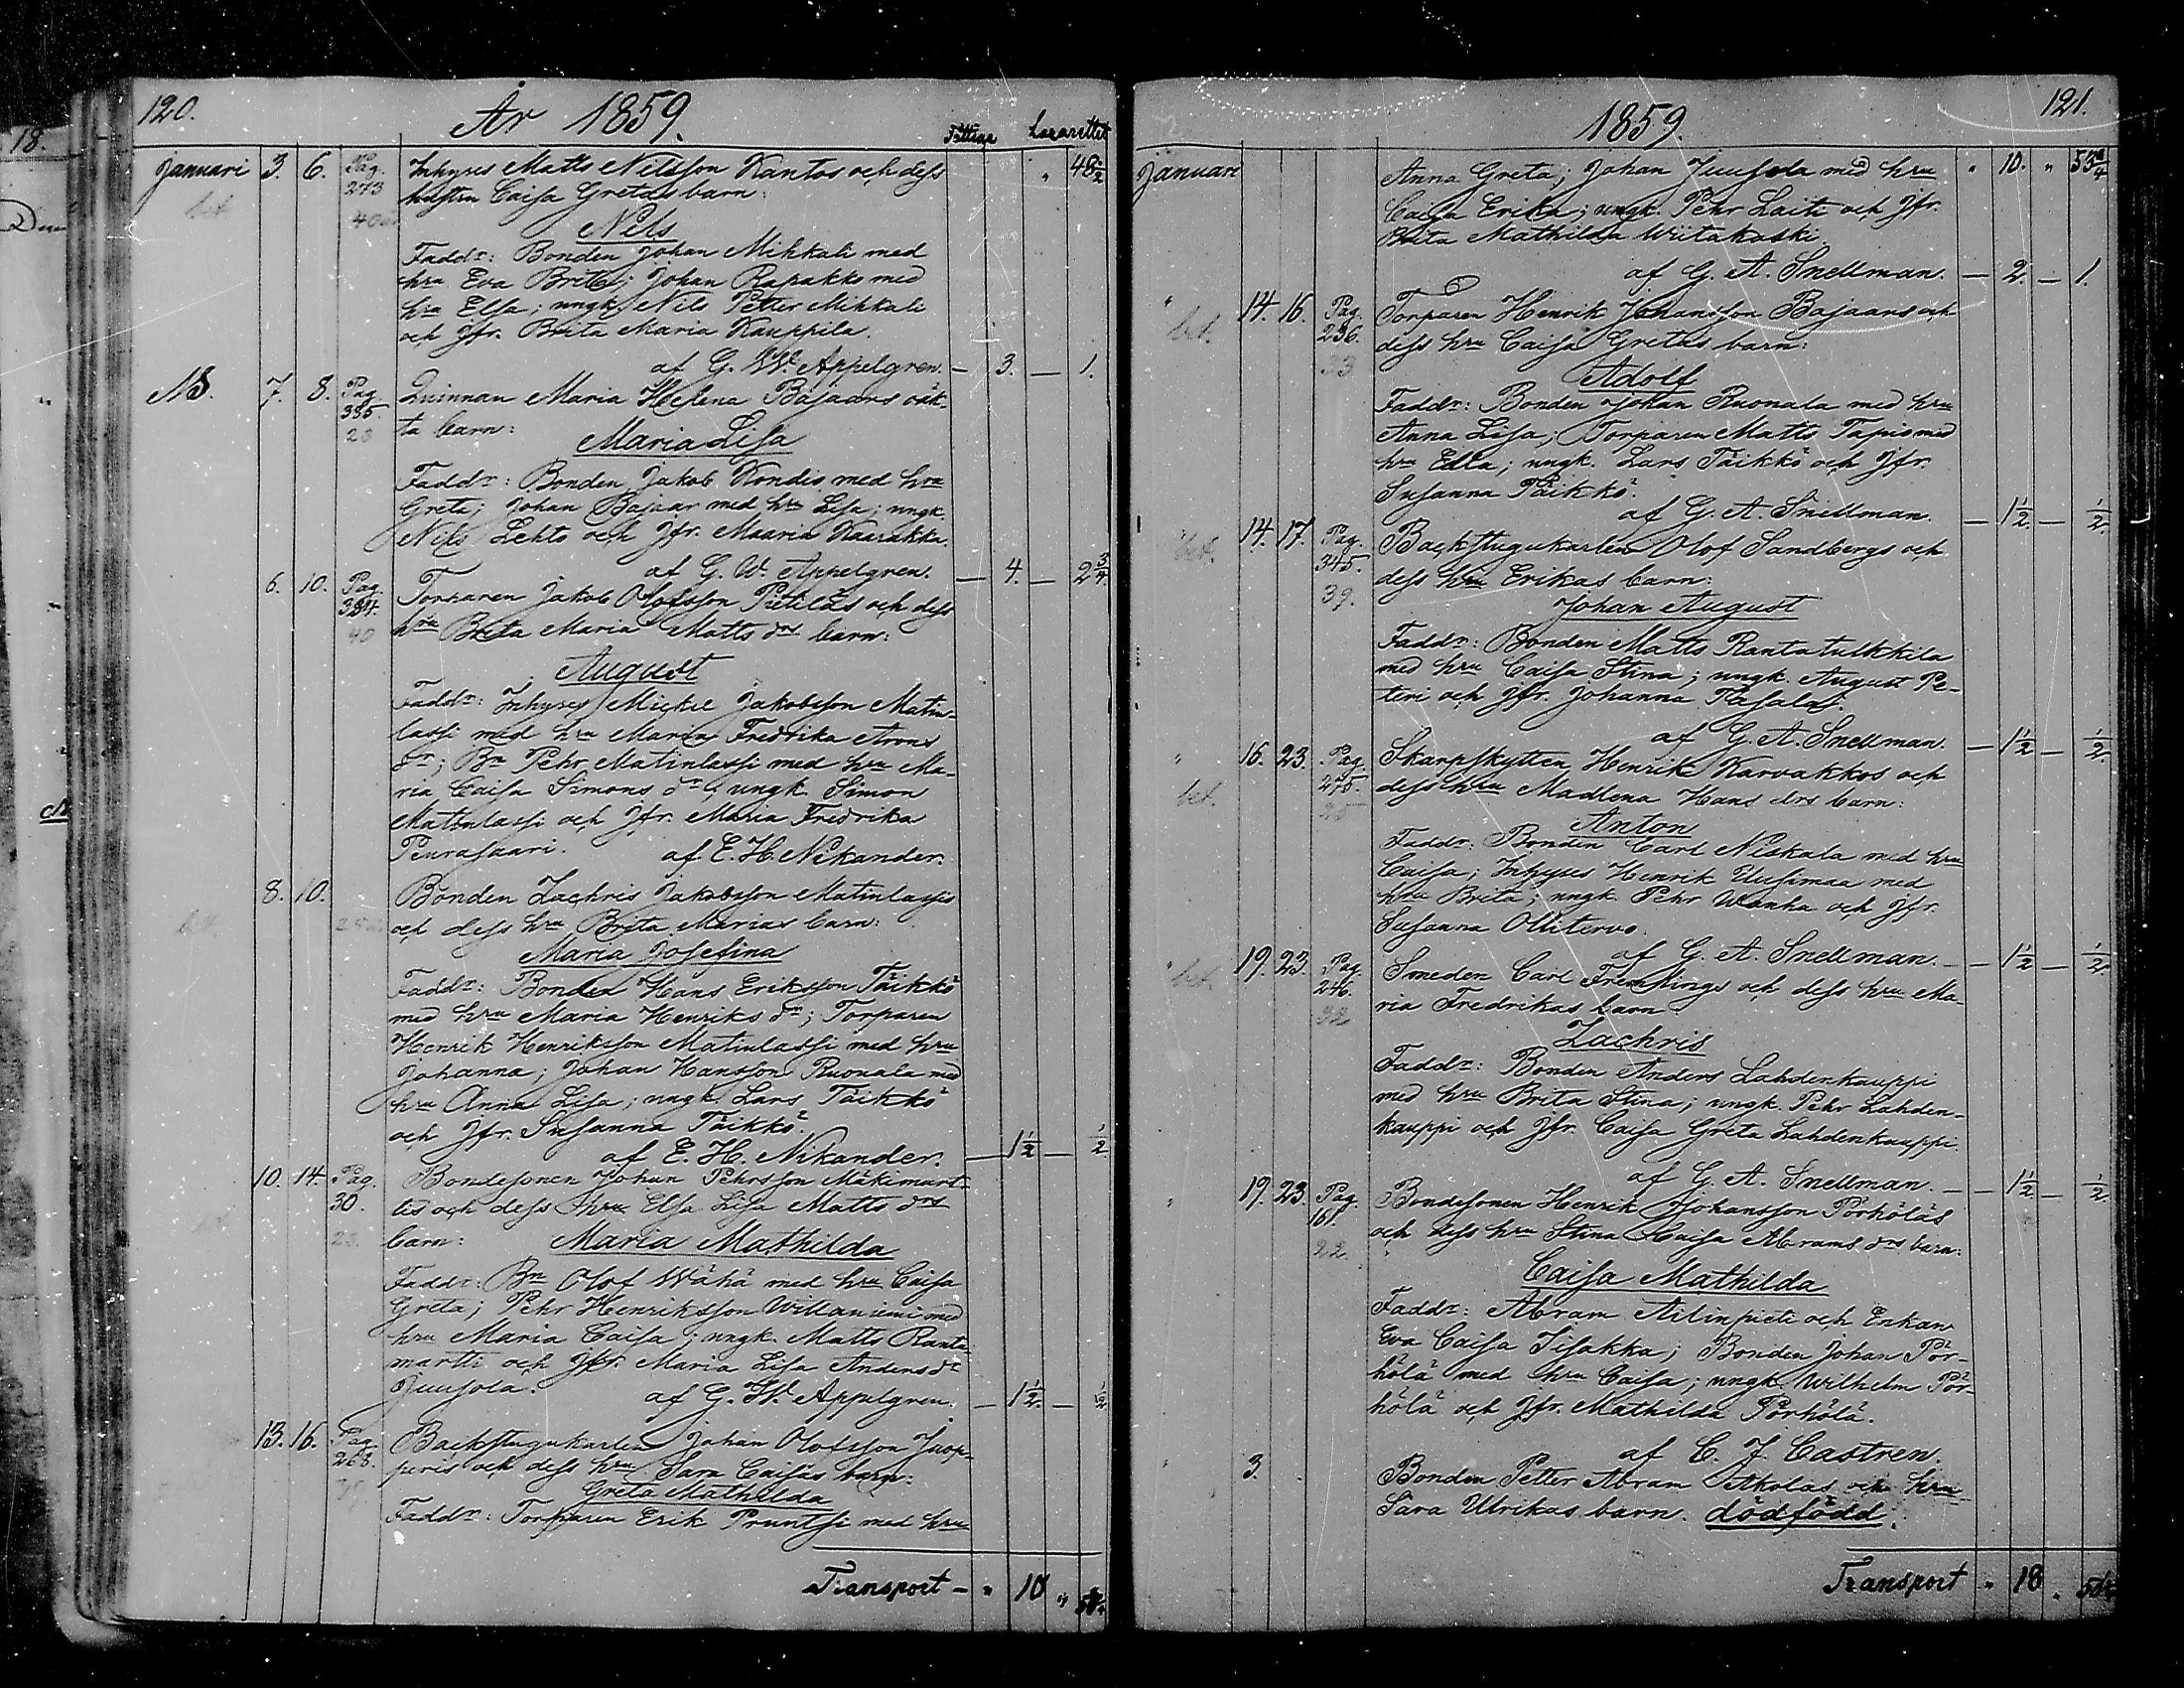 120.
År 1859.
Fattiga Lazarettet
Januari 3. 6. Pag. Inhyses Matts Nilsson Kantos och dess " 48 1/2
bet 273 hustru Caisa Gretas barn:
40
Nils
Faddr: Bonden Johan Mikkali med
hru Eva Brita; Johan Rapakko med
hru Elsa; ungk. Nils Petter Mikkali
och Jfr. Brita Maria Kauppila.
af G. W. Appelgren. — 3. — 1.
7. 8. Pag. Quinnan Maria Helena Bajaars oäk-
385. ta barn:
28
Maria Lisa
Faddr: Bonden Jakob Kondis med hru
Greta; Johan Bajaar med hru Lisa; ungk.
Nils Lehto och Jfr. Maaria Kaarakka.
af G. W. Appelgren. — 4. — 2 3/4.
6. 10. Pag. Torparen Jakob Olofsson Pietiläs och dess
384. hru Brita Maria Matts drs barn:
40
August
Faddr: Inhyses Mickel Jakobsson Matin-
lassi med hru Maria Fredrika Arons
dr; Bn Pehr Matinlassi med hru Ma-
ria Caisa Simons dr; ungk. Simon
Matinlassi och Jfr. Maria Fredrika
Peurasaari. af E. H. Nikander.
8. 10. Bonden Zachris Jakobsson Matinlassis
bet. och dess hru Brita Marias barn:
Maria Josefina
Faddr: Bonden Hans Eriksson Täikkö
med hru Maria Henriks dr; Torparen
Henrik Henriksson Matinlassi med hru
Johanna; Johan Hansson Ruonala med
hru Anna Lisa; ungk. Lars Täikkö
och Jfr. Susanna Täikkö.
af E. H. Nikander. — 1 1/2 — 1/2
10. 14. Pag. Bondesonen Johan Pehrsson Mäkimart-
30. tis och dess hru Elsa Lisa Matts drs
barn: Maria Mathilda
Faddr: Bn Olof Wähä med hru Caisa
Greta; Pehr Henriksson Willaniemi med
hru Maria Caisa; ungk. Matts Ranta-
martti och Jfr. Maria Lisa Anders dr
Juusola.
af G. W. Appelgren. — 1 1/2. — 1/2
13. 16. Pag. Backstugukarlen Johan Olofsson Juop-
268. peris och dess hru Sara Caisas barn:
39.
Greta Mathilda
Faddr: Torparen Erik Pruntsi med hru
Transport — " 10 "
121.
1859.
Januari Anna Greta; Johan Juusola med hru " 10. " 53 3/4
Caisa Erika; ungk. Pehr Laiti och Jfr.
Brita Mathilda Wiitakoski
af G. A. Snellman. — 2. — 1.
" 14. 16. Pag. Torparen Henrik Johansson Bajaars och
bet. 236. dess hru Caisa Gretas barn:
33
Adolf
Faddr: Bonden Johan Ruonala med hru
Anna Lisa; Torparen Matts Tapio med
hru Edla; ungk. Lars Täikkö och Jfr.
Susanna Täikkö.
af G. A. Snellman. — 1 1/2 — 1/2.
bet. 14. 17. Pag. Backstugukarlen Olof Sandbergs och
345. dess hru Erikas barn:
39.
Johan August
Faddr: Bonden Matts Rantatulkkila
med hru Caisa Stina; ungk. August Pe-
teri och Jfr. Johanna Pasala.
af G. A. Snellman. — 1 1/2 — 1/2.
" 16. 23. Pag. Skarpskytten Henrik Karvakkos och
bet. 275. dess hru Madlena Hans drs barn:
35
Anton
Faddr: Bonden Carl Niskala med hru
Caisa; Inhyses Henrik Uusimaa med
hru Brita; ungk. Pehr Wanha och Jfr.
Susanna Ollitervo.
af G. A. Snellman. — 1 1/2 — 1/2.
" bet. 19. 23. Pag. Smeden Carl Fremlings och dess hru Ma-
246. ria Fredrikas barn
32
Zachris
Faddr: Bonden Anders Lahdenkauppi
med hru Brita Stina; ungk. Pehr Lahden-
kauppi och Jfr. Caisa Greta Lahdenkauppi.
af G. A. Snellman. — 1 1/2 — 1/2
" 19. 23. Pag. Bondesonen Henrik Johansson Pörhöläs
161. och dess hru Stina Caisa Abrams drs barn:
22.
Caisa Mathilda
Faddr: Abram Ailinpieti och Enkan
Eva Caisa Sisakka; Bonden Johan Pör-
hölä med hru Caisa; ungk. Wilhelm Pör-
hölä och Jfr. Mathilda Pörhölä.
af C. J. Castren.
" 3. Bonden Petter Abram Akolas och hru
Sara Ulrikas barn. dödfödd.
Transport " 18 "